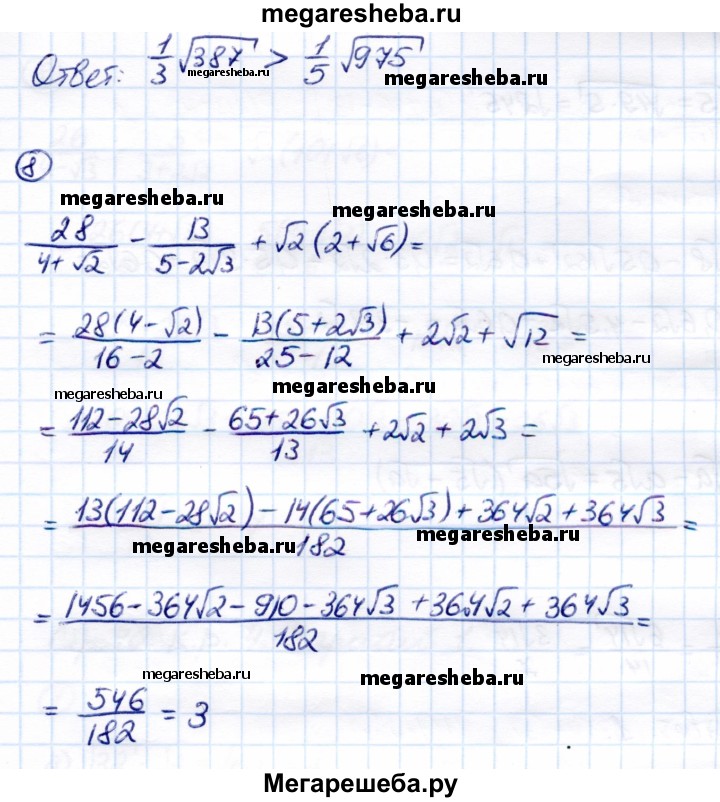 megaresheba.ru
Ответ: 1/3 √387 > 1/5 √975
megaresheba.ru megaresheba.ru
8
megaresheba.ru megaresheba.ru
28/(4+√2) - 13/(5-2√3) + √2(2+√6) =
= 28(4-√2)/(16-2) - 13(5+2√3)/(25-12) + 2√2 + √12 =
megaresheba.ru
megaresheba.ru megaresheba.ru
= (112-28√2)/14 - (65+26√3)/13 + 2√2 + 2√3 =
= (13(112-28√2) - 14(65+26√3) + 364√2 + 364√3)/182 =
megaresheba.ru megaresheba.ru
= (1456-364√2-910-364√3+364√2+364√3)/182 =
megaresheba.ru megaresheba.ru
= 546/182 = 3
Мегарешеба.ру